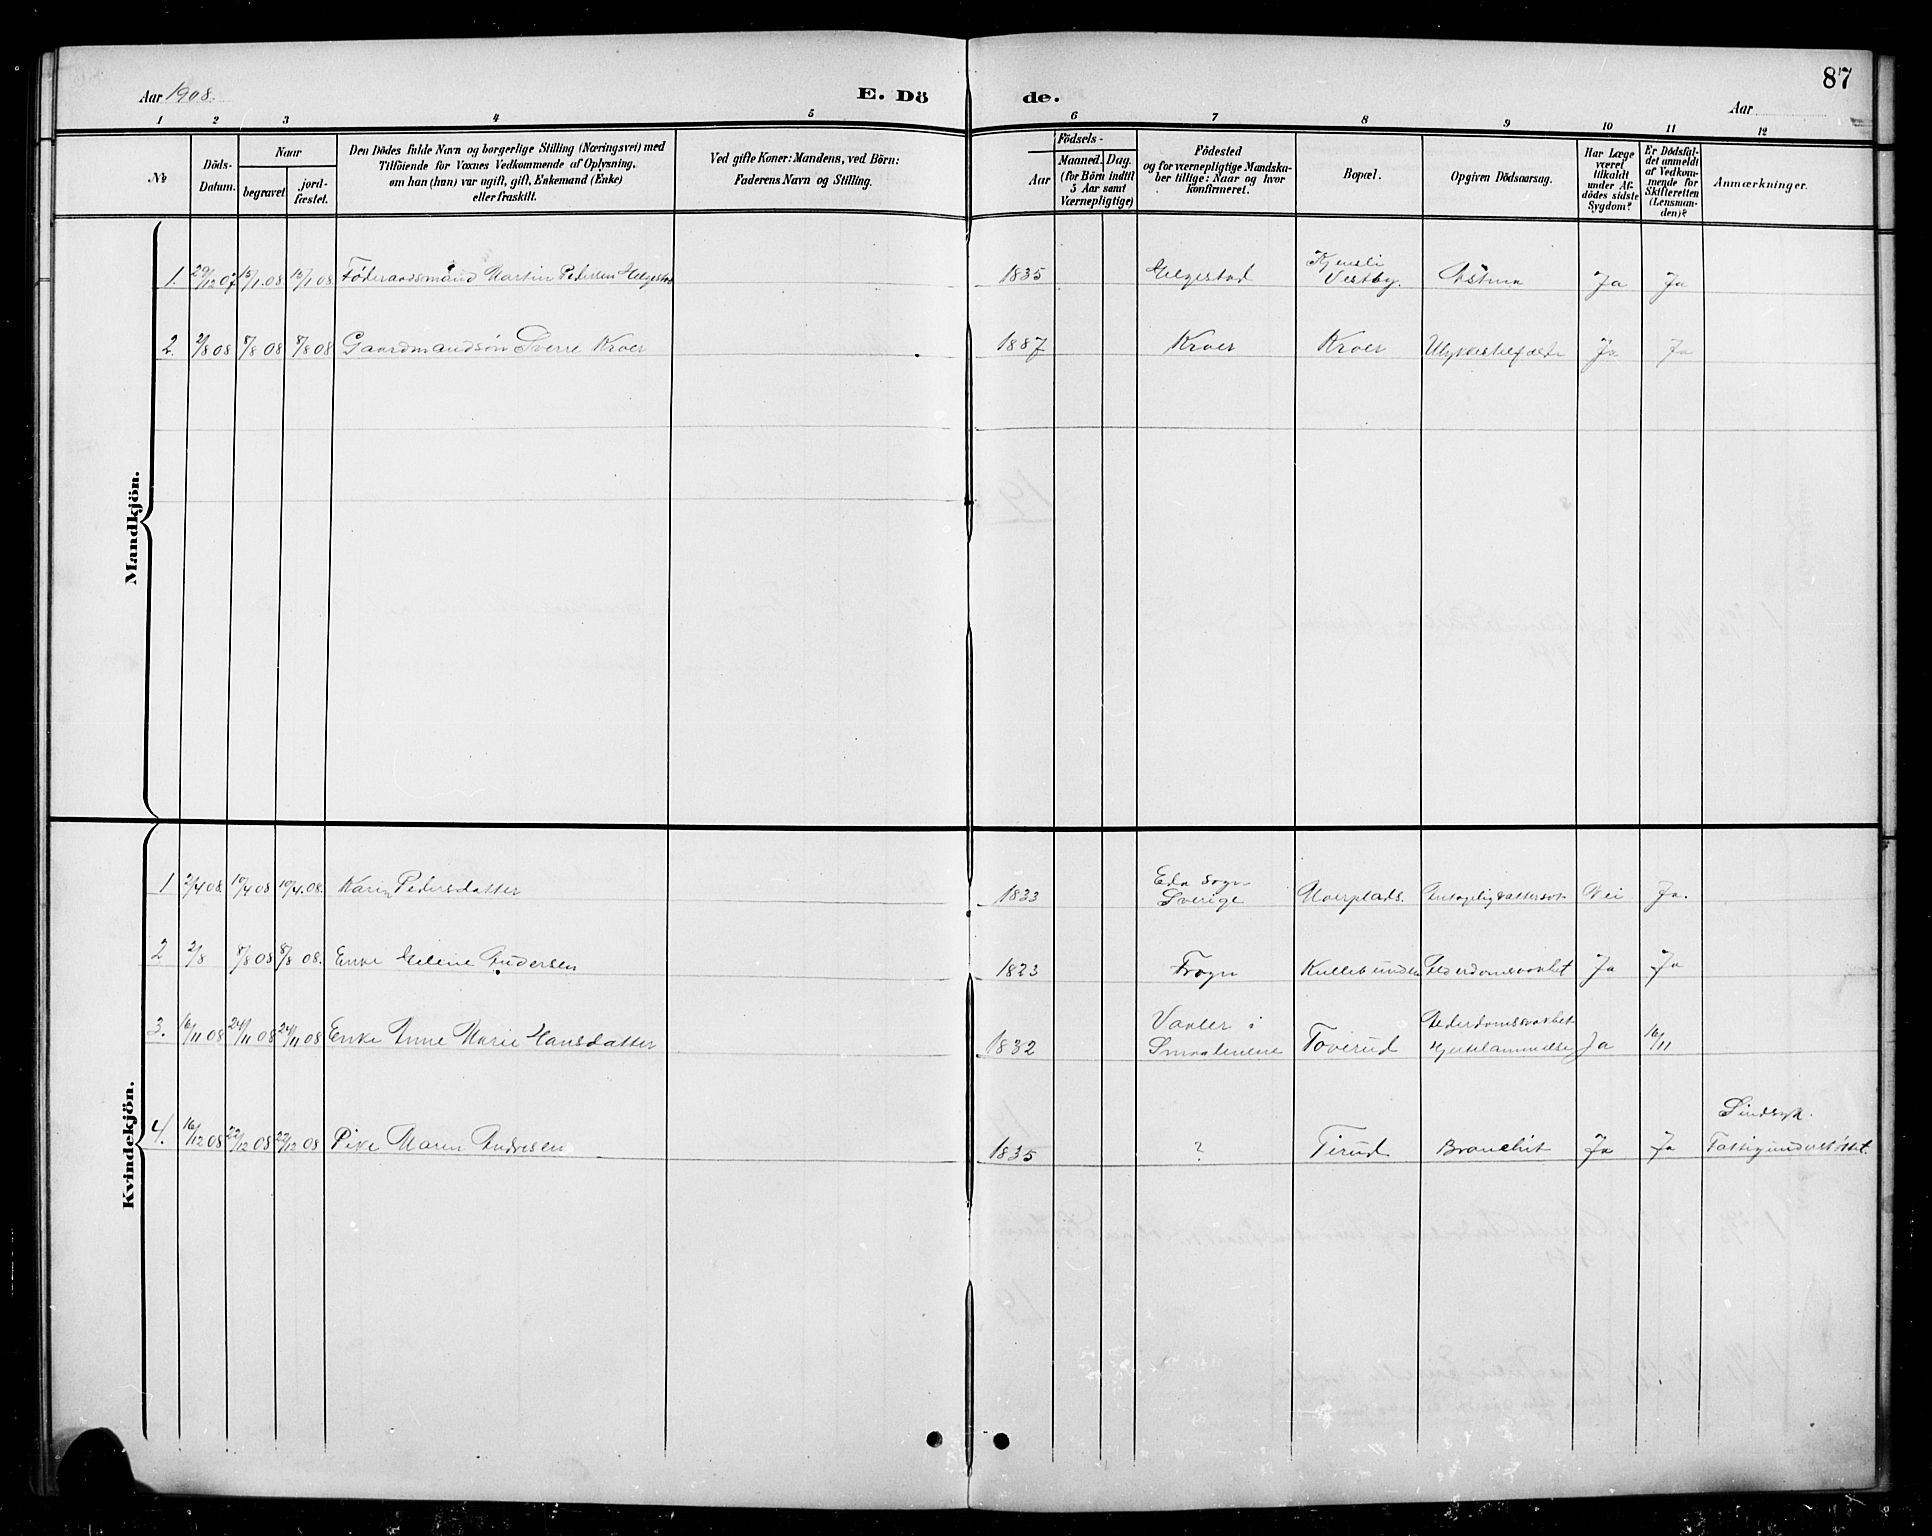 87
Aar 1908.
E. Dö
de.
Aar
1 2 3 4 5 6 7 8 9 10 11 12
No
Döds-
Datum.
Naar
begravet
jord-
fæstet.
Den Dödes fulde Navn og borgerlige Stilling (Næringsvei) med
Tilföiende for Voxnes Vedkommende af Oplysning,
om han (hun) var ugift, gift, Enkemand (Enke)
eller fraskilt.
Ved gifte Koner: Mandens, ved Börn:
Faderens Navn og Stilling.
Födsels-
Aar
Maaned. Dag.
(for Börn indtil
5 Aar samt
Værnepligtige)
Födested
og for værnepligtige Mandska-
ber tillige: Naar og hvor
konfirmeret.
Bopæl.
Opgiven Dödsaarsag.
Har Læge
været
tilkaldt
under Af-
dödes sidste
Sygdom?
Er Dödsfal-
det anmeldt
af Vedkom-
mende for
Skifteretten
(Lensman-
den)?
Anmærkninger.
Mandkjön.
1. 29/12 07 15/1.08 15/1 08 Föderaadsmand Martin Pedersen Helgestad 1835 Helgestad Kjensli Vestby. Astma Ja Ja
2. 2/8 08 8/8 08 8/8 08 Gaardmandsön Sverre Kroer 1887 Kroer Kroer Ulykkestilfælde Ja Ja
Kvindekjön.
1 2/4 08 10/4 08 10/4.08. Karin Pedersdatter 1833 Eda Sogn Sverige Nei Ja.
2 2/8 8/8 08 8/8 08. Enke Helene Andersen 1823 Frogn Alderdomssvakhet Ja Ja
3. 16/11 08 24/11 08 24/11 08 Enke Anne Marie Hansdatter 1832 Vaaler i Smaalenene Toverud Alderdomssvakhet Hjertelammelse Ja 16/11
4. 16/12 08 22/12 08 22/12 08 Pike Maren Andresen 1835 ? Tirud Bronchit Ja Ja Sindsyk. Fattigunderstöttet.